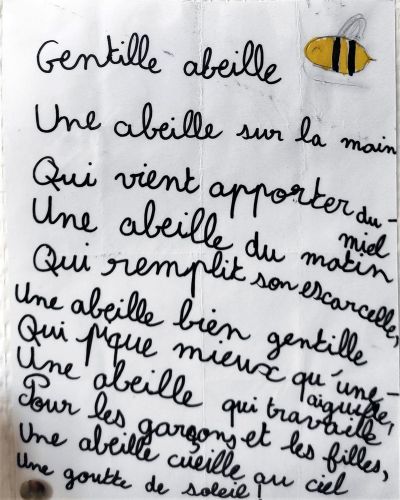 Gentille abeille
Une abeille sur la main
Qui vient apporter du-
miel
Une abeille du matin
Qui remplit son escarcelle,
Une abeille bien gentille
Qui pique mieux qu'une-
aiguille,
Une abeille qui travaille
Pour les garçons et les filles,
Une abeille cueille au ciel
Une goutte de soleil!